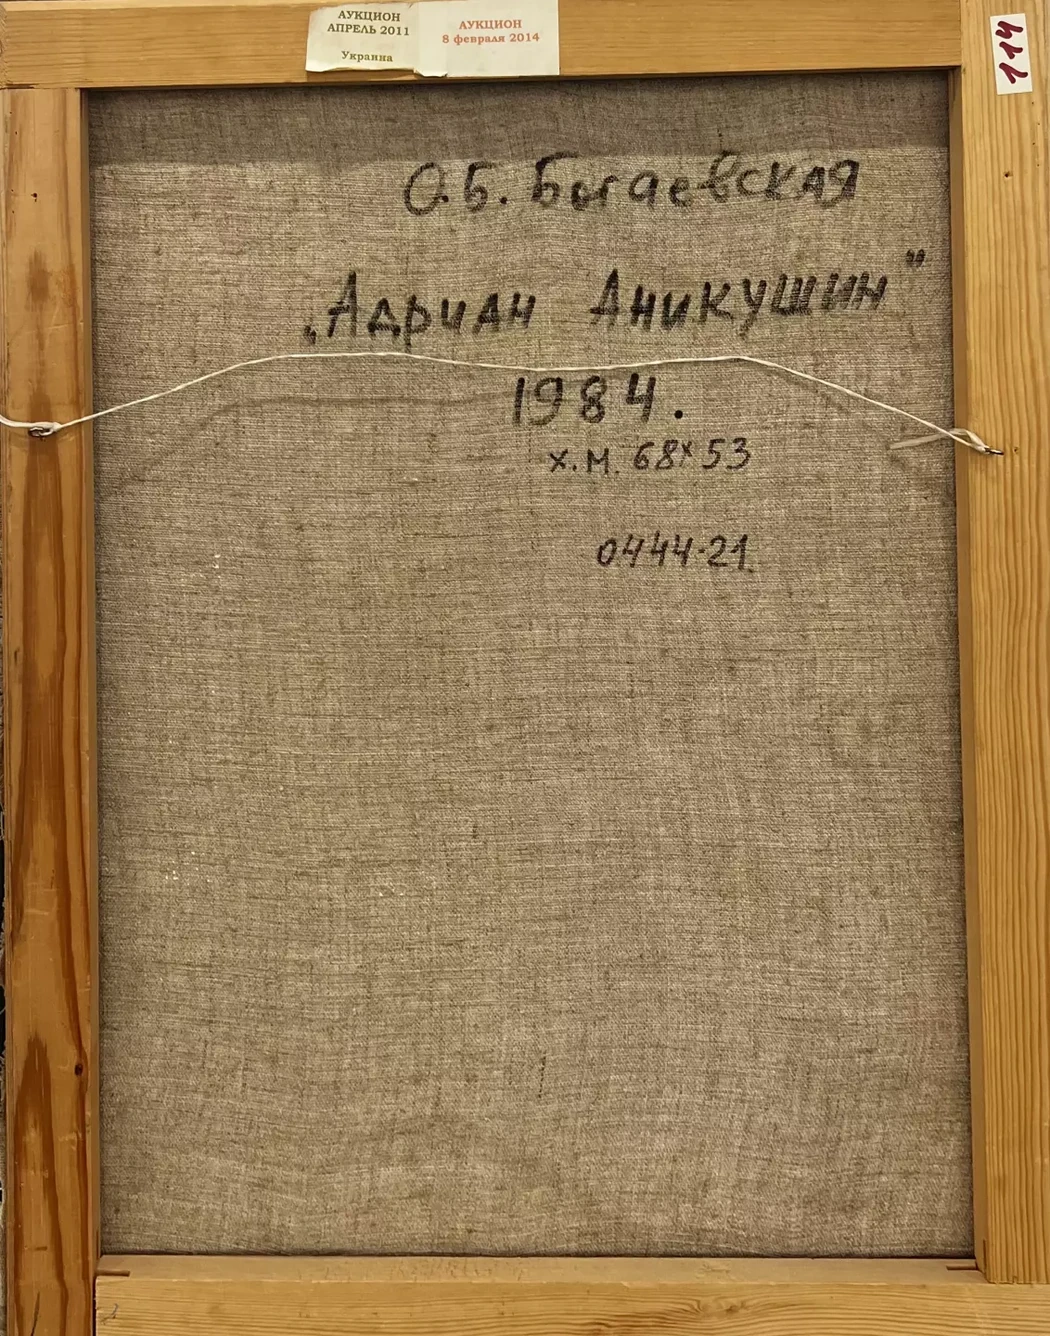 АУКЦИОН
АПРЕЛЬ 2011
Украина
АУКЦИОН
8 февраля 2014
О.Б. Богаевская
„Адриан Аникушин"
1984.
х.м. 68х53
0444-21.